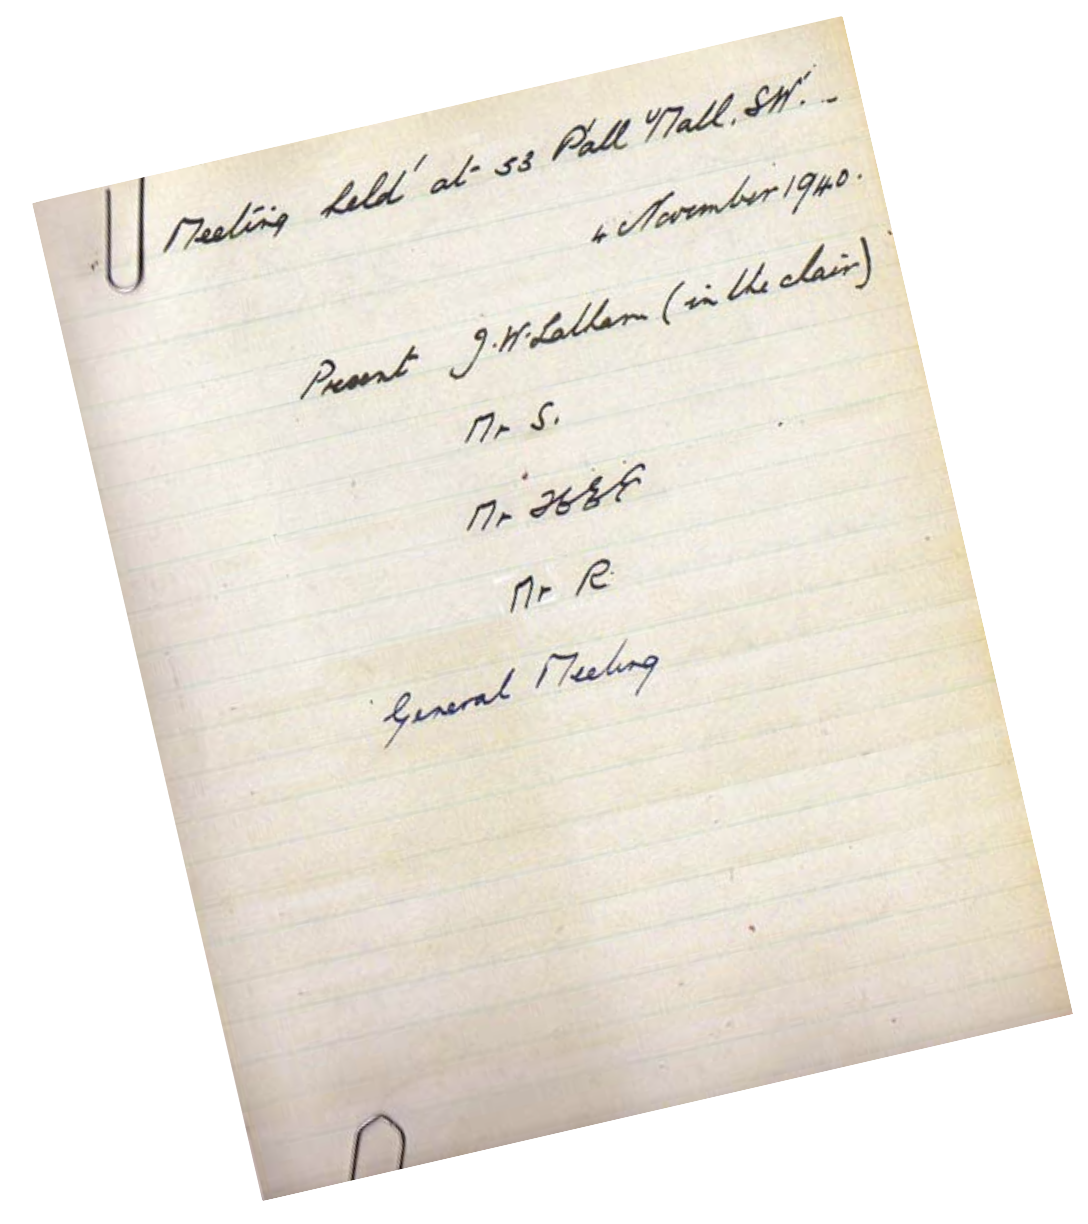 Meeting held at 53 Pall Mall. SW. -
4 November 1940.
Present J. W. Latham (in the chair)
Mr S.
Mr
Mr R.
General Meeting